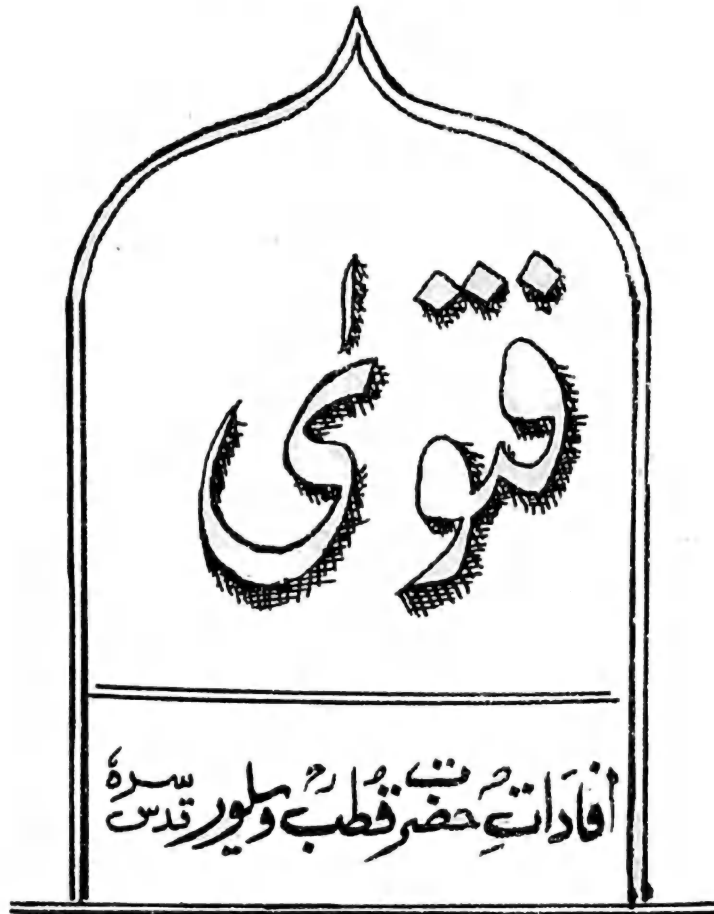 فتویٰ
افادَاتِ حضرت قُطب وَیلور قدس سرہٗ